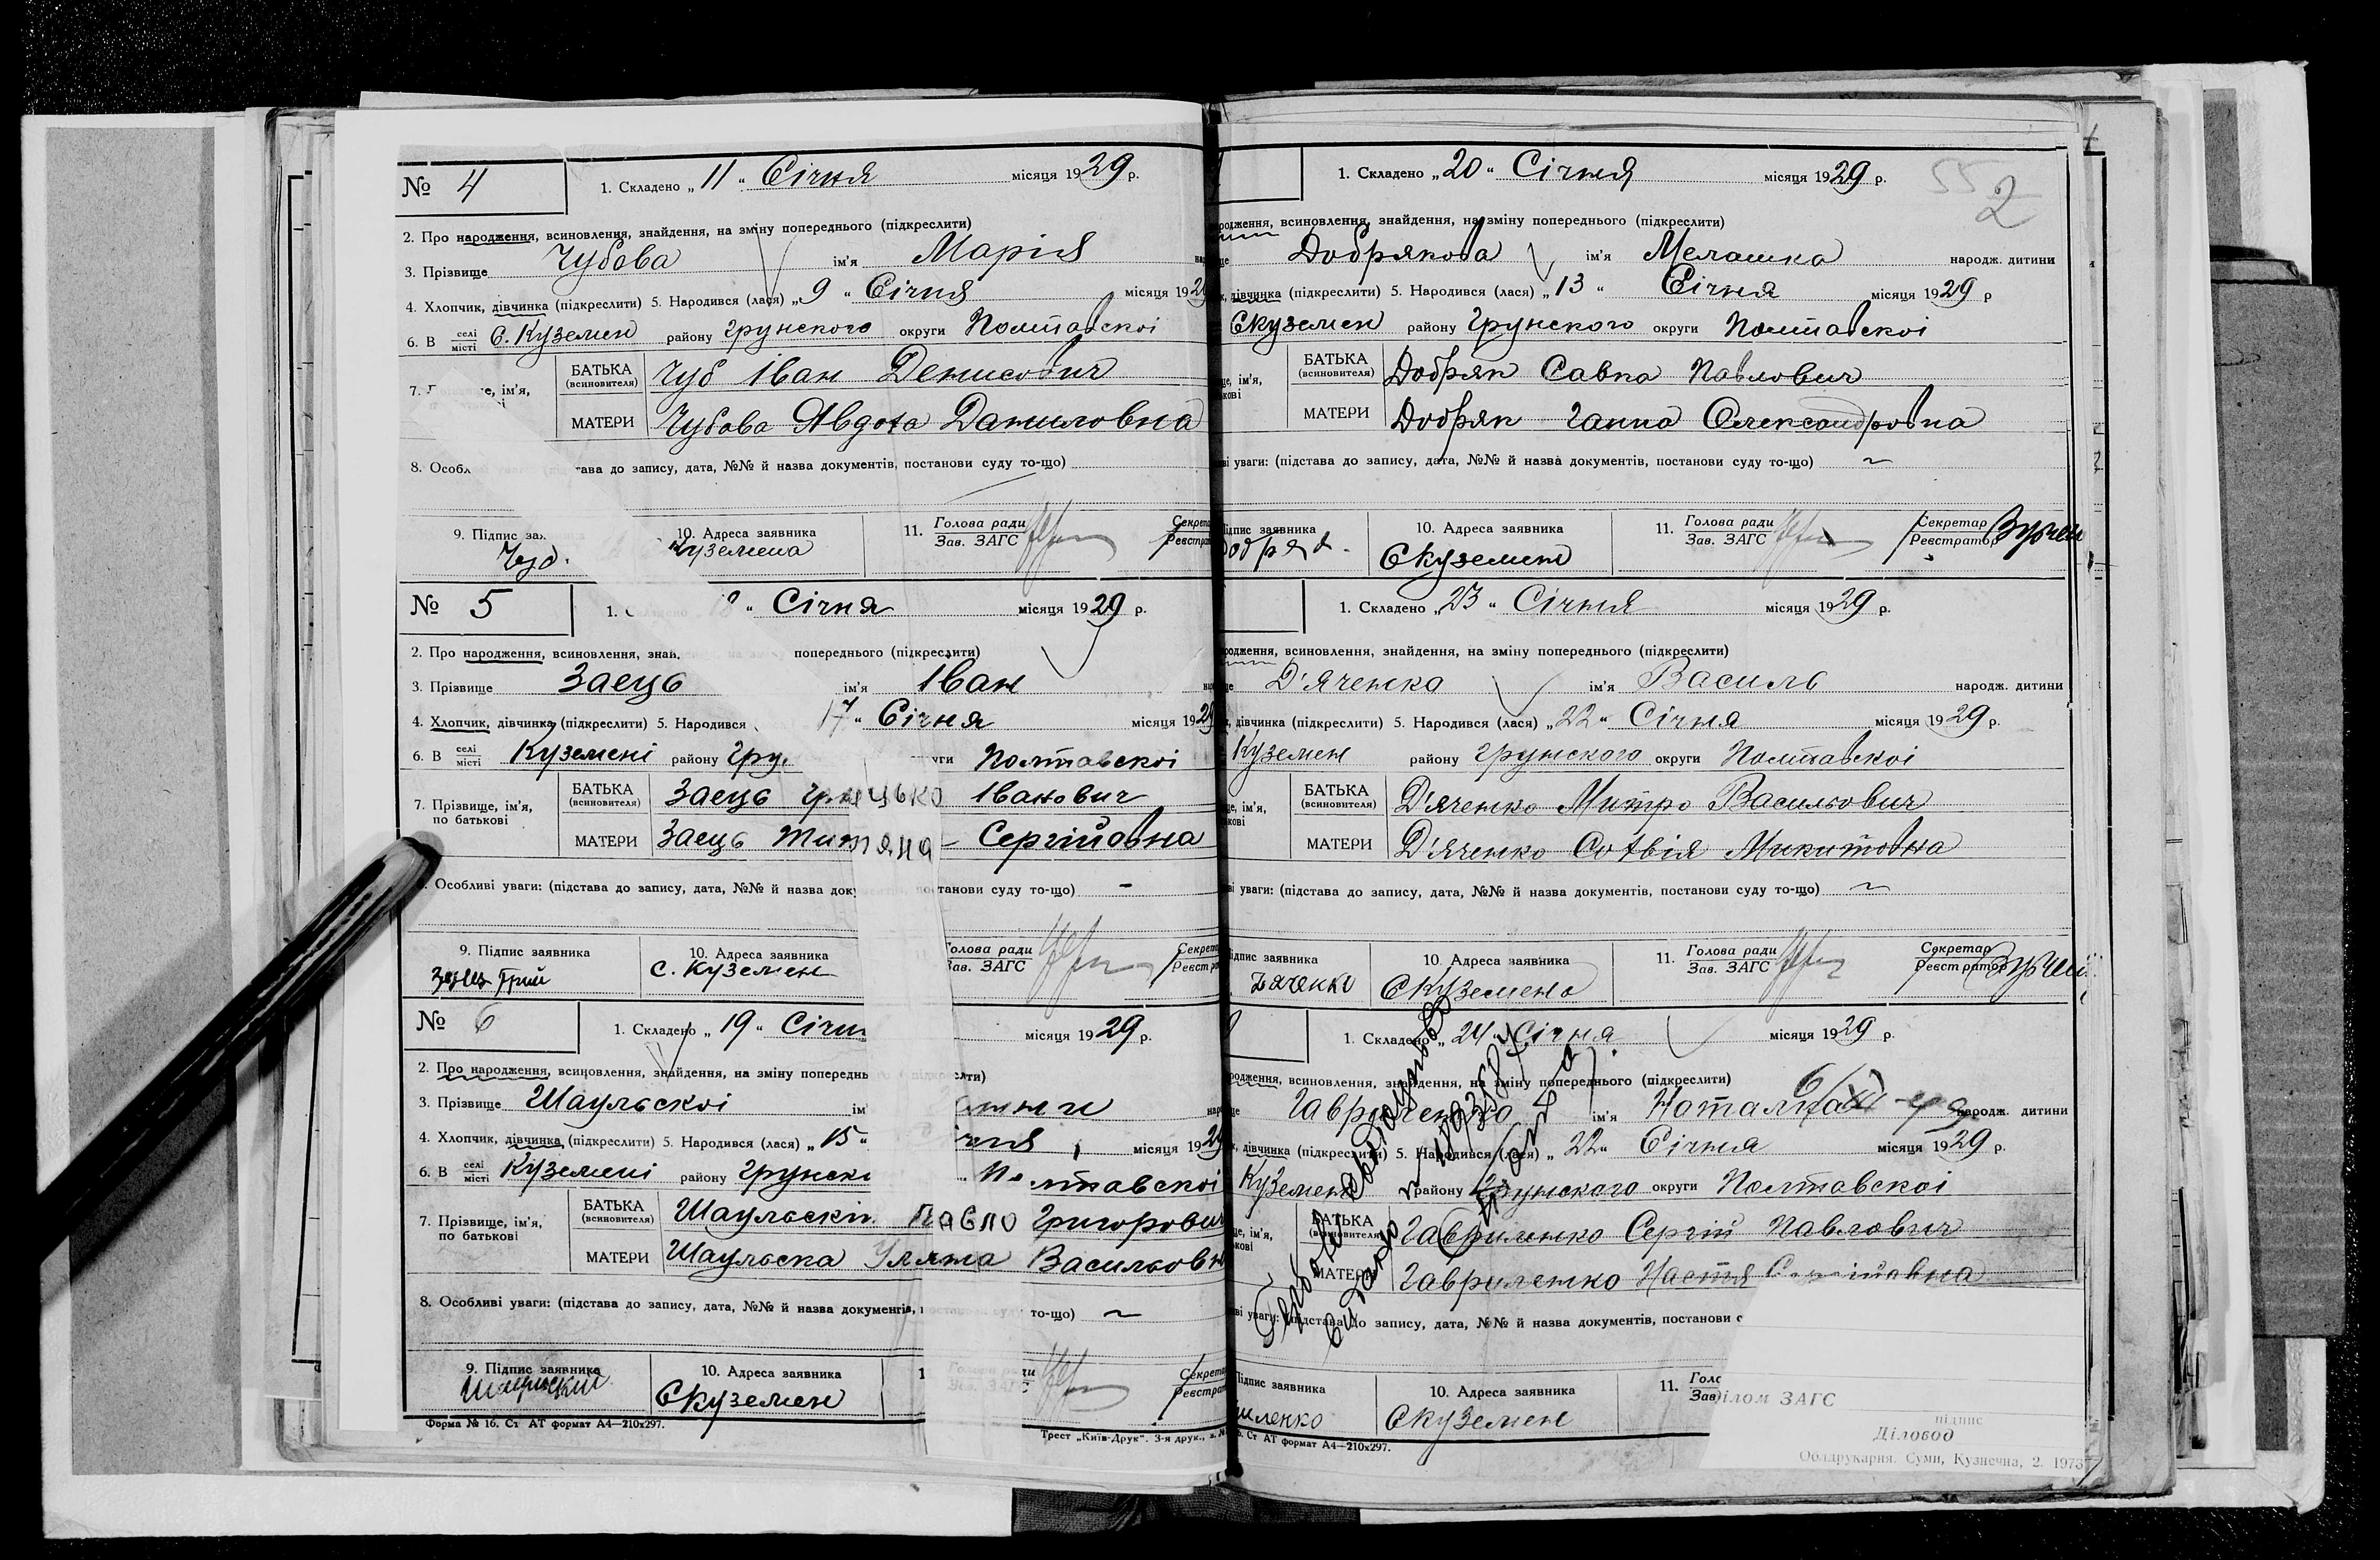 № 4
1. Складено „ 11 “ Січня місяця 1929 р.
2. Про народження, всиновлення, знайдення, на зміну попереднього (підкреслити)
3. Прізвище Чубова ім'я Марія
4. Хлопчик, дівчинка (підкреслити) 5. Народився (лася) „ 9 “ Січня місяця 192
6. В селі місті С. Куземен району Грунского округи Полтавскої
7. ім'я,
БАТЬКА (всиновителя) Чуб Іван Денисович
МАТЕРИ Чубова Явдоха Даниловна
8. Особл тава до запису, дата, №№ й назва документів, постанови суду то-що)
9. Підпис за
Чуб.
10. Адреса заявника
Куземена
11. Голова ради
Зав. ЗАГС
№ 5
1. “ Січня місяця 1929 р.
2. Про народження, всиновлення, знай. попереднього (підкреслити)
3. Прізвище Заець ім'я Іван
4. Хлопчик, дівчинка (підкреслити) 5. Народився 17 “ Січня місяця 1929
6. В селі місті Куземені району Гру. Полтавскої
7. Прізвище, ім'я, по батькові
БАТЬКА (всиновителя) Заець Грицько Іванович
МАТЕРИ Заець Титяна Сергійовна
Особливі уваги: (підстава до запису, дата, №№ й назва док станови суду то-що) –
9. Підпис заявника
10. Адреса заявника
с. Куземен
Голова ради
Зав. ЗАГС
№ 6
1. Складено „ 19 “ Січня місяця 1929 р.
2. Про народження, всиновлення, знайдення, на зміну попередн
3. Прізвище Шаульскоі
4. Хлопчик, дівчинка (підкреслити) 5. Народився (лася) „ 15 “ місяця 1929
6. В селі місті Куземені району Грунск Полтавскої
7. Прізвище, ім'я, по батькові
БАТЬКА (всиновителя) Шаульский Павло Григорович
МАТЕРИ Шаульска Уляна Васильовн
8. Особливі уваги: (підстава до запису, дата, №№ й назва документів, то-що) ~
9. Підпис заявника
Шаульский
10. Адреса заявника
С Куземен
Форма № 16. Ст АТ формат А4—210х297.
Трест „Київ-Друк“. 3-я друк.,
55
2
1. Складено „ 20 “ Січня місяця 1929 р.
родження, всиновлення, знайдення, на зміну попереднього (підкреслити)
Добрякова ім'я Мелашка народж. дитини
дівчинка (підкреслити) 5. Народився (лася) „ 13 “ Січня місяця 1929 р
С Куземен району Грунского округи Полтавскоі
БАТЬКА (всиновителя) Добряк Савка Павлович
МАТЕРИ Добряк Ганна Олександровна
уваги: (підстава до запису, дата, №№ й назва документів, постанови суду то-що) ~
Підпис заявника
Добряк.
10. Адреса заявника
С Куземен
11. Голова ради
Зав. ЗАГС
Секретар
Реєстратор
1. Складено „ 23 “ Січня місяця 1929 р.
родження, всиновлення, знайдення, на зміну попереднього (підкреслити)
Д'яченко ім'я Василь народж. дитини
дівчинка (підкреслити) 5. Народився (лася) „ 22 “ Січня місяця 1929 р.
Куземен району Грунского округи Полтавскоі
БАТЬКА (всиновителя) Д'яченко Митро Васильович
МАТЕРИ Д'яченко Софвія Микитовна
уваги: (підстава до запису, дата, №№ й назва документів, постанови суду то-що) ~
Підпис заявника
Дяченко
10. Адреса заявника
С Куземено
11. Голова ради
Зав. ЗАГС
Секретар
Реєстратор
1. Складено „ 24 “ Січня місяця 1929 р.
родження, всиновлення, знайдення, на зміну попереднього (підкреслити)
Гавриленко ім'я Наталка народж. дитини
дівчинка (підкреслити) 5. Народився (лася) „ 22 “ Січня місяця 1929 р.
Куземен району Грунского округи Полтавскоі
БАТЬКА (всиновителя) Гавриленко Сергій Павлович
МАТЕРИ Гавриленко Настя
уваги: підстава до запису, дата, №№ й назва документів, постанови
Підпис заявника
иленко
10. Адреса заявника
С Куземен
11.
Ст АТ формат А4—210х297.
ілом ЗАГС
підпис
Діловод
Облдрукарня. Суми, Кузнечна, 2. 1973